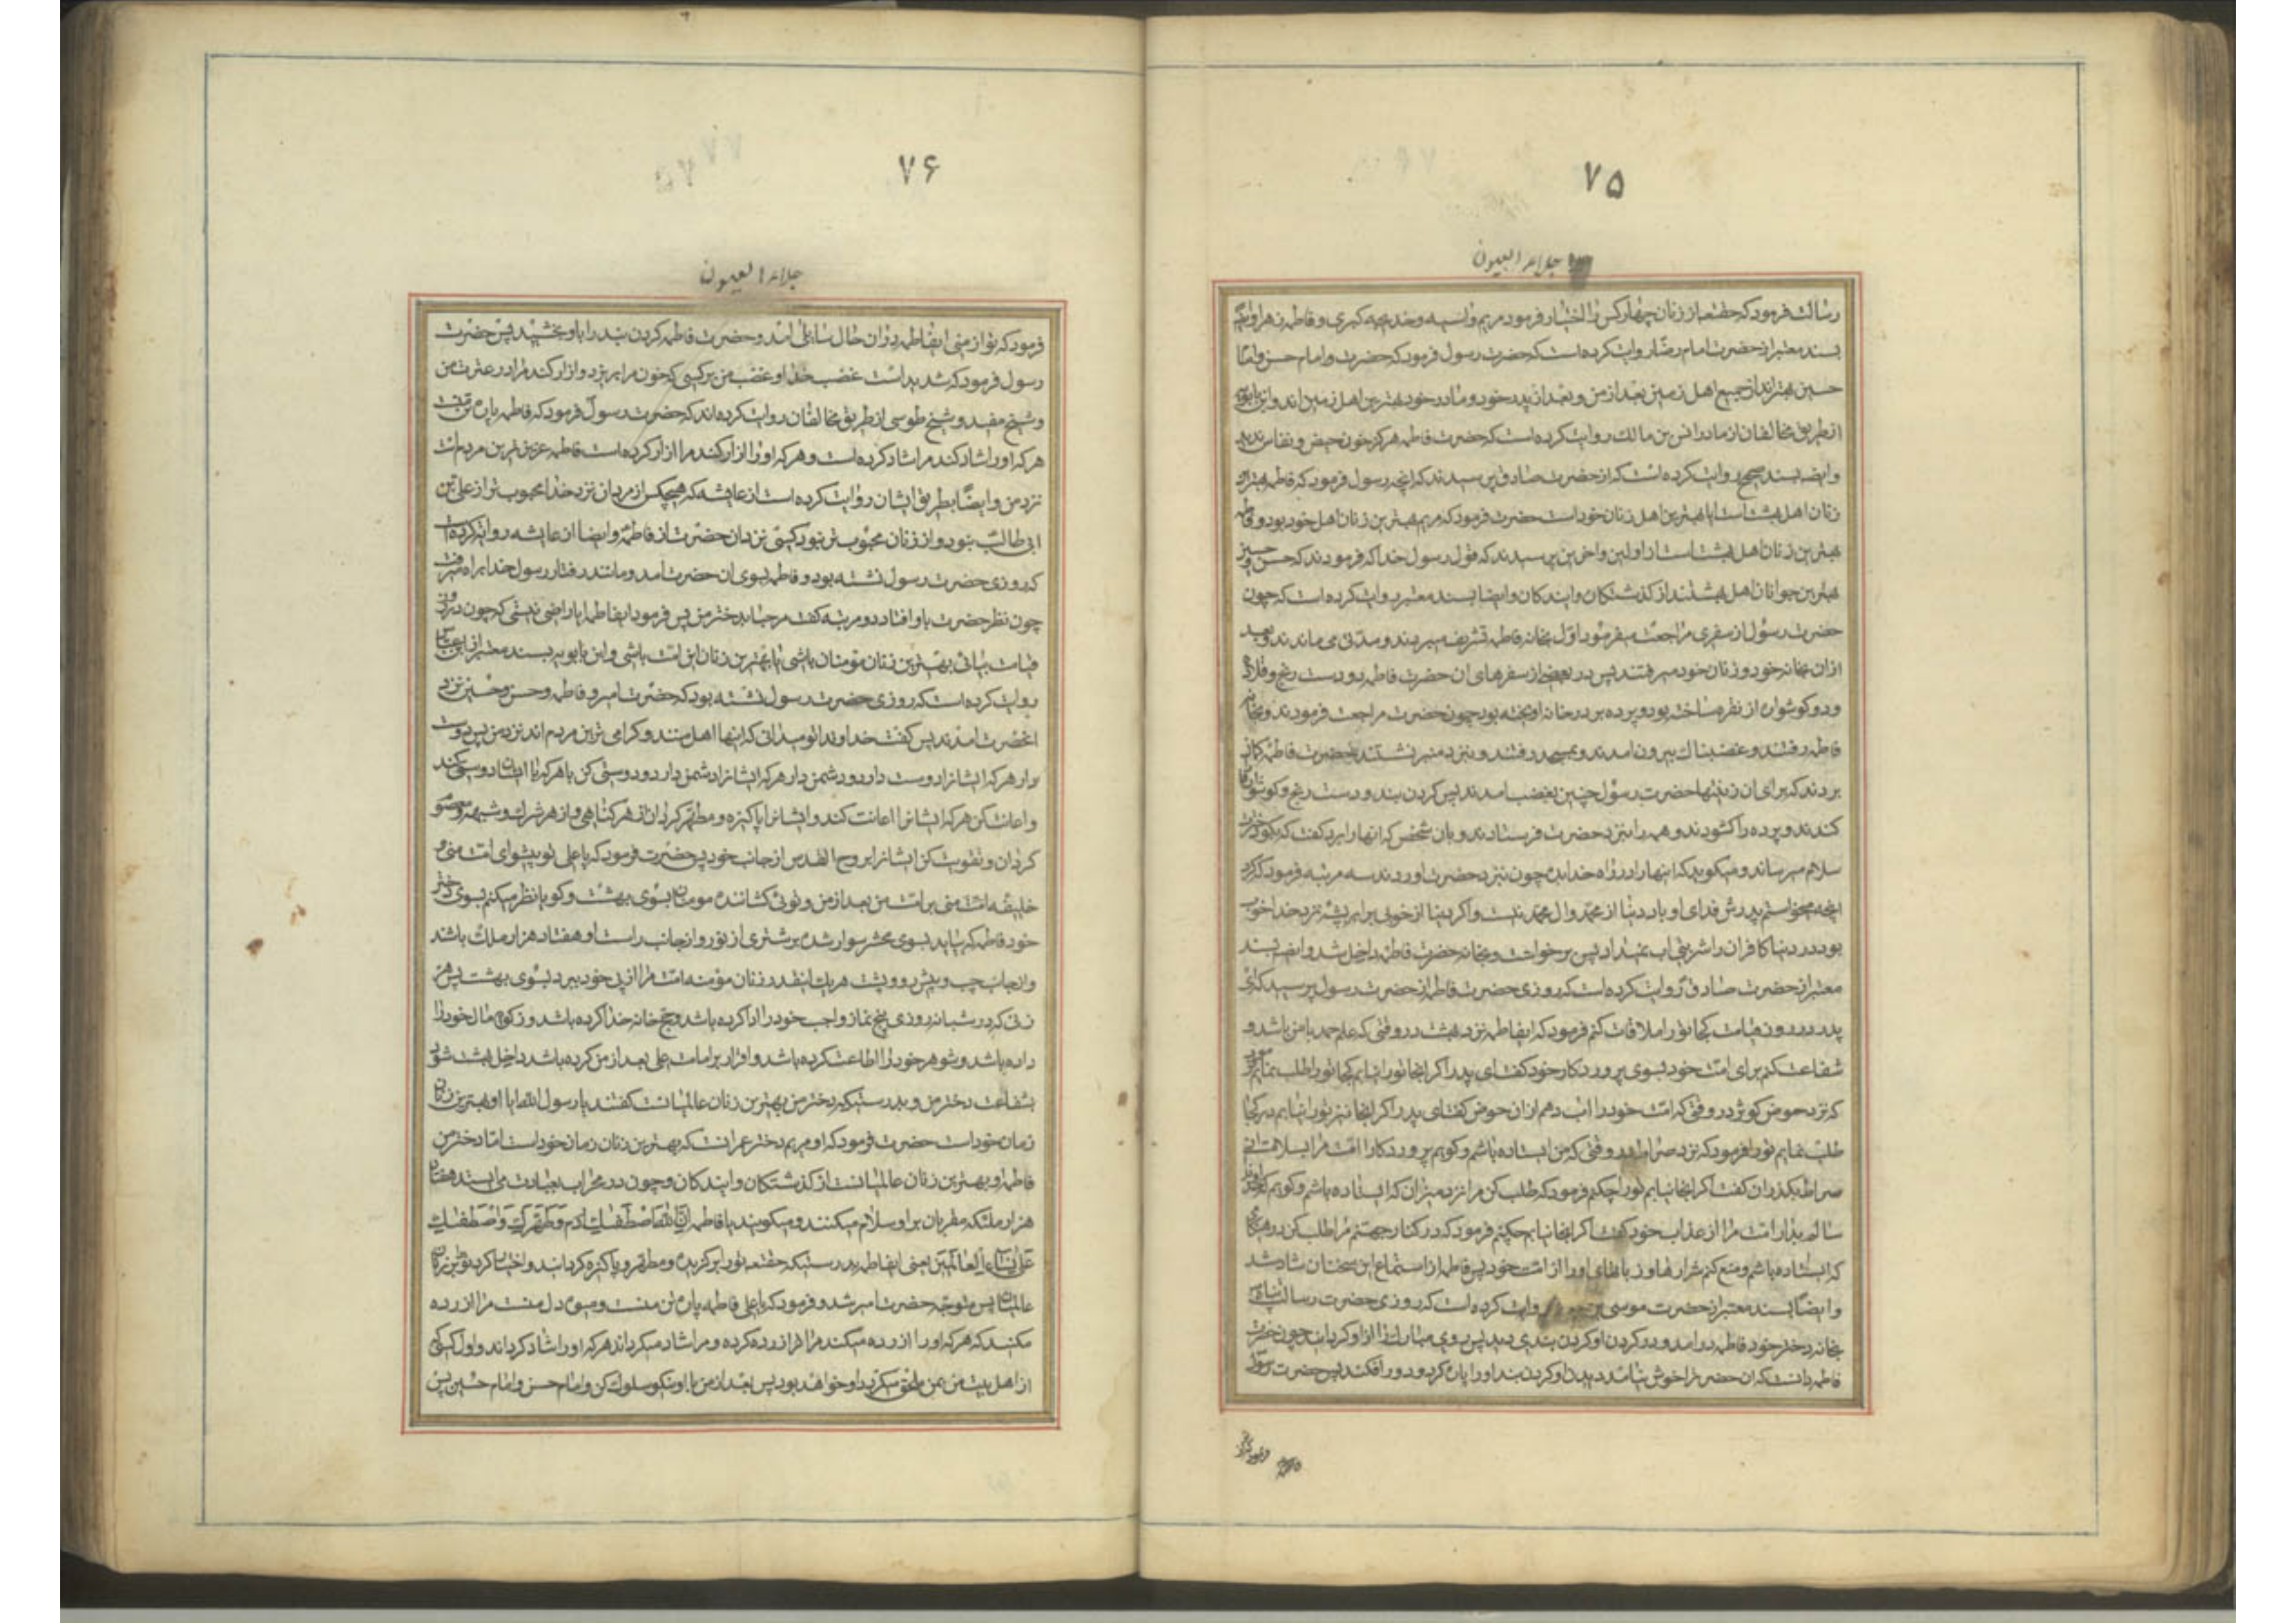 ۷۵
جلاء العیون
رسالت فرمود که حقتعالی از زنان چهار کس را اختیار فرمود مریم و آسیه و خدیجه کبری و فاطمه زهرا و
بسند معتبر از حضرت امام رضا روایت کرده است که حضرت رسول فرمود که حضرت و امام حسن و امام
حسین بهترانند از جمیع اهل زمین بعد از من و بعد از پدر خود و مادر خود بهترین اهل زمین اند و ابن بابویه
از طریق مخالفان از مادر انس بن مالک روایت کرده است که حضرت فاطمه هرگز خون حیض و نفاس ندید
و ایضا بسند صحیح روایت کرده است که از حضرت صادق پرسیدند که اینکه رسول فرمود که فاطمه بهترین
زنان اهل بهشت است ایا بهترین اهل زنان خود است حضرت فرمود که مریم بهترین زنان اهل خود بود و فاطمه
بهترین زنان اهل بهشت است از اولین و اخرین پرسیدند که قول رسول خدا که فرمودند که حسن و حسین
بهترین جوانان اهل بهشتند از کذشتکان و ایندکان و ایضا بسند معتبر روایت کرده است که چون
حضرت رسول از سفری مراجعت میفرمود اول بخانه فاطمه تشریف میبردند و مدتی می ماندند و بعد
ازان بخانه خود و زنان خود میرفتند پس در بعضی از سفرهای ان حضرت فاطمه دو دست رنج و قلاده
و دو کوشواره از نقره ساخته بود و پرده بر در خانه اویخته بود چون حضرت مراجعت فرمودند و بخانه
فاطمه رفتند و غضبناک بیرون امدند و بمسجد رفتند و بنزد منبر نشستند حضرت فاطمه کمان
بردند که برای ان زینتها حضرت رسول چنین بغضب امدند پس کردن بند و دست رنج و کوشوارها
کندند و پرده را کشودند و همه را بنزد حضرت فرستادند و بان شخص که انها را برد کفت که بکو دخترت
سلام میرساند و میکوید که اینها را در راه خدا بده چون بنزد حضرت اوردند سه مرتبه فرمود که کرد
انچه میخواستم پدرش فدای او باد دنیا از محمد و ال محمد نیست و اکر دنیا از خوبی برابر پشه نزد خدا خوب
بود در دنیا کافران را شربتی اب نمیداد پس برخواست و بخانه حضرت فاطمه داخل شد و ایضا بسند
معتبر از حضرت صادق روایت کرده است که روزی حضرت فاطمه از حضرت رسول پرسید که ای
پدر در روز قیامت کجا تو را ملاقات کنم فرمود که ایفاطمه نزد بهشت در وقتی که علم حمد با من باشد و
شفاعت کنم برای امت خود بسوی پروردکار خود کفت ای پدر اکر انجا تو را نیابم کجا تو را طلب نمایم فرمود
که نزد حوض کوثر در وقتی که امت خود را اب دهم ازان حوض کفت ای پدر اکر انجا نیز تو را نیابم در کجا
طلب نمایم تو را فرمود که نزد صراط در وقتی که من ایستاده باشم و کویم پروردکارا امت مرا بسلامت از
صراط بکذران کفت اکر انجا نیابم تو را چکنم فرمود که طلب کن مرا نزد میزان که ایستاده باشم و کویم که خداوندا
سالم بدار امت مرا از عذاب خود کفت اکر انجا نیابم چکنم فرمود که در کنار جهنم مرا طلب کن در وقتی
که ایستاده باشم و منع کنم شرارها و زبانهای او را از امت خود پس فاطمه از استماع این سخنان شاد شد
و ایضا بسند معتبر از حضرت موسی بن جعفر روایت کرده است که روزی حضرت رسالت پناه
بخانه دختر خود فاطمه در امد و در کردن او کردن بندی دید پس روی مبارک را از او کردانید چون حضرت
فاطمه دانست که ان حضرت را خوش نیامد دیدن او کردن بند او را پاره کرد و دور افکند پس حضرت رسول
۷۶
جلاء العیون
فرمود که تو از منی ایفاطمه دران حال سایلی امد و حضرت فاطمه کردن بند را باو بخشید پس حضرت
رسول فرمود که شدید است غضب خدا و غضب من بر کسی که خون مرا بریزد و ازار کند مرا در عترت من
و شیخ مفید و شیخ طوسی از طریق مخالفان روایت کرده اند که حضرت رسول فرمود که فاطمه پاره تن منست
هر که او را شاد کند مرا شاد کرده است و هر که او را ازار کند مرا ازار کرده است فاطمه عزیزترین مردم است
نزد من و ایضا بطریق ایشان روایت کرده است از عایشه که هیچکس از مردان نزد خدا محبوب تر از علی بن
ابی طالب نبود و از زنان محبوب تر نبود کسی نزد ان حضرت از فاطمه و ایضا از عایشه روایت کرده است
که روزی حضرت رسول نشسته بود و فاطمه بسوی ان حضرت امد و مانند رفتار رسول خدا براه میرفت
چون نظر حضرت باو افتاد دو مرتبه کفت مرحبا بدختر من پس فرمود ایفاطمه ایا راضی نیستی که چون در روز
قیامت بیائی بهترین زنان مؤمنان باشی یا بهترین زنان این امت باشی و ابن بابویه بسند معتبر از ابن عباس
روایت کرده است که روزی حضرت رسول نشسته بود که حضرت امیر و فاطمه و حسن و حسین نزد
انحضرت امدند پس کفت خداوندا تو میدانی که اینها اهل بیتند و کرامی ترین مردم اند نزد من پس دوست
بدار هر که ایشانرا دوست دارد و دشمن دار هر که ایشانرا دشمن دارد و دوستی کن با هر که با ایشان دوستی کند
و اعانت کن هر که ایشانرا اعانت کند و ایشانرا پاکیزه و مطهر کردان از هر کناهی و از هر شرک و شبهه و معصوم
کردان و تقویت کن ایشانرا بروح القدس از جانب خود پس حضرت فرمود که یا علی تو پیشوای امت منی و
خلیفه منی بر امت من بعد از من و توئی کشاننده مومنان بسوی بهشت و کویا نظر میکنم بسوی دختر
خود فاطمه که بیاید بسوی محشر سوار شده بر شتری از نور و از جانب راست او هفتاد هزار ملک باشند
و از جانب چپ و پیش رو و پشت هر یک اینقدر زنان مؤمنه امت مرا از پی خود ببرد بسوی بهشت پس هر
زنی که در شبانه روزی پنج نماز واجب خود را ادا کرده باشد و حج خانه خدا کرده باشد و زکوة مال خود را
داده باشد و شوهر خود را اطاعت کرده باشد و اقرار بر امامت علی بعد از من کرده باشد داخل بهشت شود
بشفاعت دختر من و بدرستیکه دختر من بهترین زنان عالمیانست کفتند یا رسول الله ایا او بهترین زنان
زمان خود است حضرت فرمود که او مریم دختر عمرانست که بهترین زنان زمان خود است اما دختر من
فاطمه و بهترین زنان عالمیانست از کذشتکان و ایندکان و چون در محراب بعبادت می ایستد هفتاد
هزار ملئکه مقربان براو سلام میکنند و میکویند یا فاطمه ان الله اصطفیک و طهرک و اصطفیک
علی نساء العالمین یعنی ایفاطمه بدرستیکه حقتعالی تو را برکزیده و مطهر و پاکیزه کردانید و اختیار کرد تو را بر زنان
عالمیان پس متوجه حضرت امیر شد و فرمود که یا علی فاطمه پاره تن منست و میوه دل منست مرا ازرده
میکند که هر که او را ازرده میکند مرا ازرده کرده و مرا شاد میکرداند هر که او را شاد کرداند و اول کسی
از اهل بیت من بمن ملحق میکردد او خواهد بود پس بعد از من با او نیکو سلوک کن و امام حسن و امام حسین پس